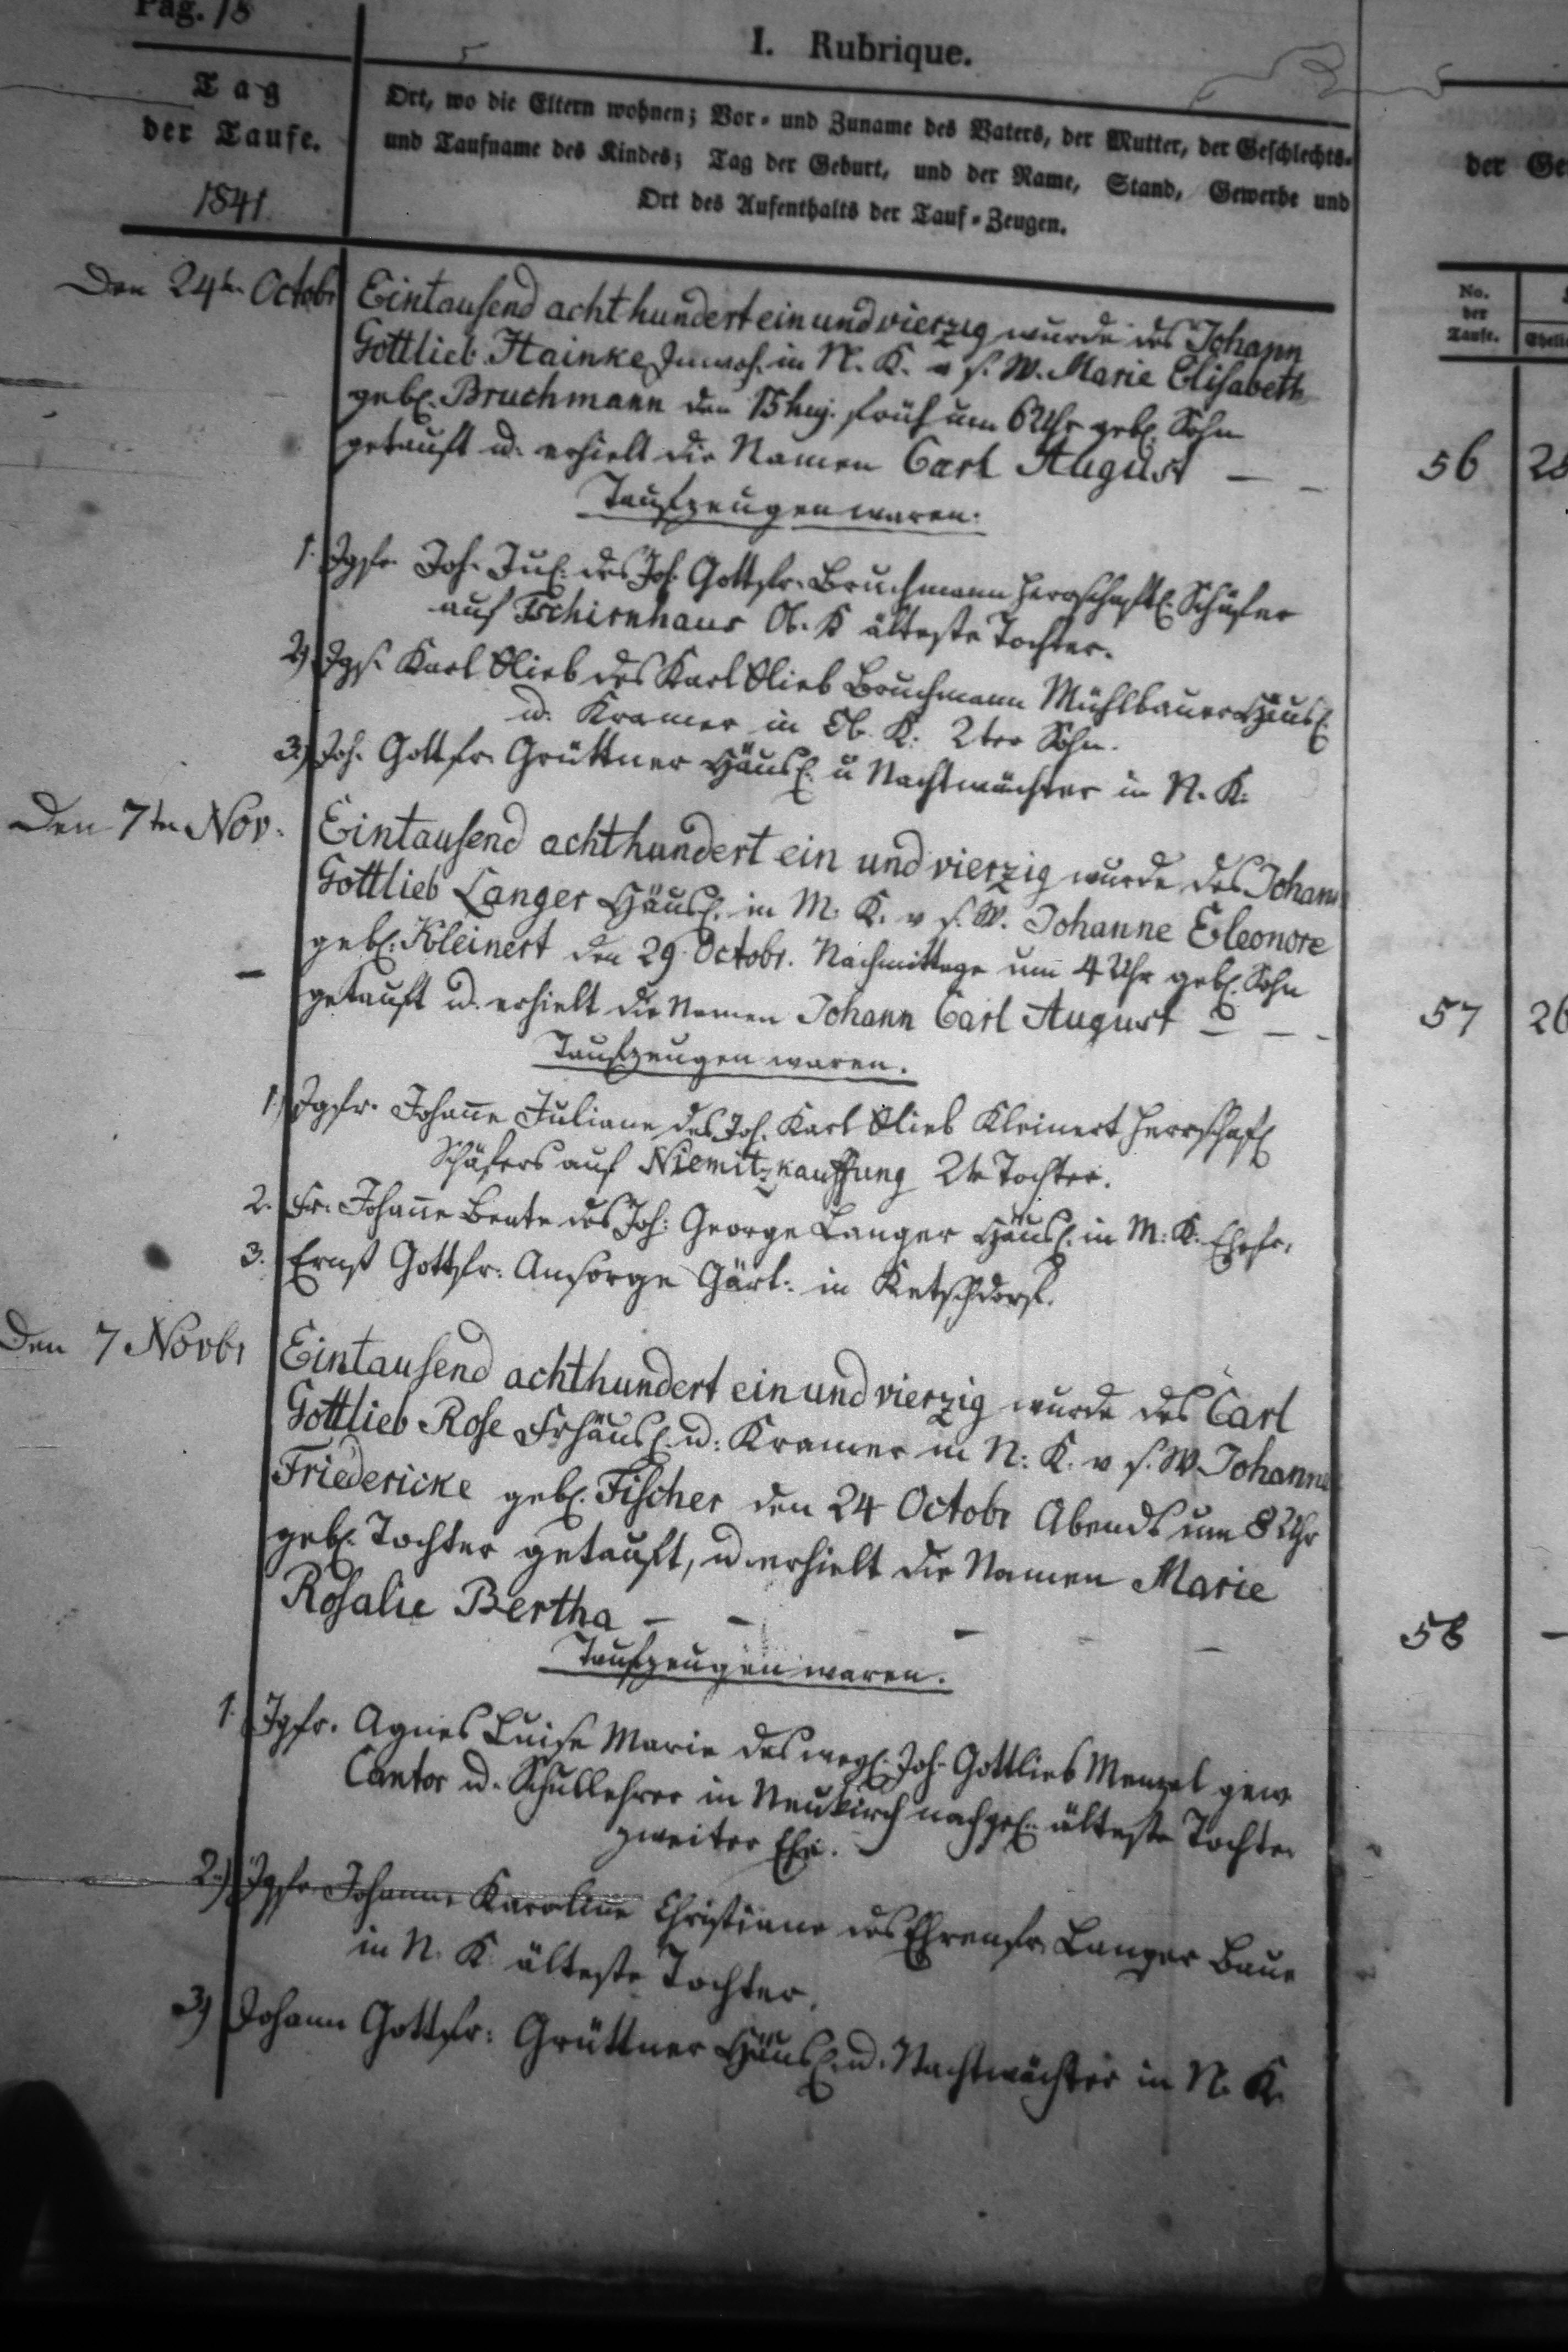 Pag. 18
I. Rubrique.
Tag
der Taufe.
1841.
Ort, wo die Eltern wohnen; Vor- und Zuname des Vaters, der Mutter, der Geschlechts-
und Taufname des Kindes; Tag der Geburt, und der Name, Stand, Gewerbe und
Ort des Aufenthalts der Tauf-Zeugen.
der Ge
No.
der
Taufe.
Den 24ten Octobr
Eintausend achthundert ein und vierzig wurde des Johann
Gottlieb Hainke Inwoh. in N. K. v s. W. Marie Elisabeth
geb. Bruchmann den 15 huj. früh um 6 Uhr geb. Sohn
getauft u. erhielt die Namen Carl August — —
56
Taufzeugen waren.
1. Jgfr. Joh. Jul. des Joh. Gottfr. Bruchmann herrschaftl. Schäfer
auf Tschirnhaus Ob. K älteste Tochter.
2) Jgs. Karl Glieb des Karl Glieb Bruchmann Mühlbauer Häusl.
u. Kramer in Ob. K. 2ter Sohn.
3.) Joh. Gottfr. Grüttner Häusl. u Nachtwächter in N. K.
Den 7ten Nov.
Eintausend achthundert ein und vierzig wurde des Johann
Gottlieb Langer Häusl. in M. K. v s. W. Johanne Eleonore
geb. Kleinert den 29. Octobr. Nachmittags um 4 Uhr geb. Sohn
getauft u. erhielt die Namen Johann Carl August — —
57
Taufzeugen waren.
1.) Jgfr. Johane Juliane des Joh. Karl Glieb Kleinert herrschaf
Schäfers auf Niemitz-Kauffung 2te Tochter.
2. Fr. Johane Beate des Joh: George Langer Häusl. in M. K. Ehefr.
3. Ernst Gottfr. Ansorge Gärt. in Ketschdorf.
Den 7 Novbr
Eintausend achthundert ein und vierzig wurde des Carl
Gottlieb Rose Frhäusl. u. Kramer in N. K. v s. W. Johanne
Friedericke geb. Fischer den 24 Octobr Abends um 8 Uhr
geb. Tochter getauft, u. erhielt die Namen Marie
Rosalie Bertha — — — — —
58 —
Taufzeugen waren.
1. Jgfr. Agnes Luise Marie des Joh. Gottlieb Menzel gew
Cantor u. Schullehrer in Neukirch nachgel. älteste Tochter
zweiter Ehe.
2.) Jgfr. Johanne Karoline Christiane des Ehrenfr. Langer Baue
in N. K. älteste Tochter.
3) Johann Gottfr: Grüttner Häusl. u. Nachtwächter in N. K.